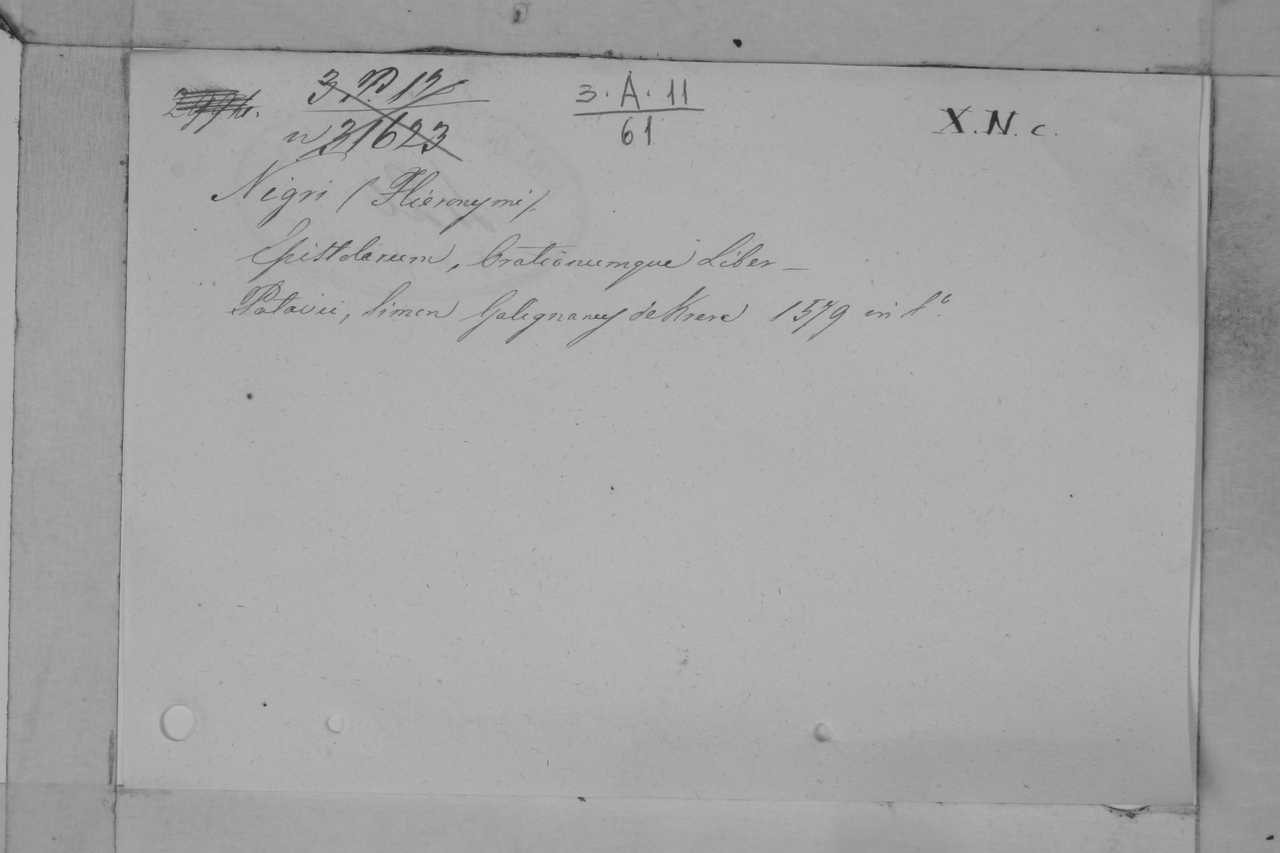 3. P. 17 3. A. 11 X. N. c.
n 31623 61
Nigri (Hieronymi)
Epistolarum, Orationumque Liber —
Patavii, Simon Galignanus de Karera 1579 in 4°.